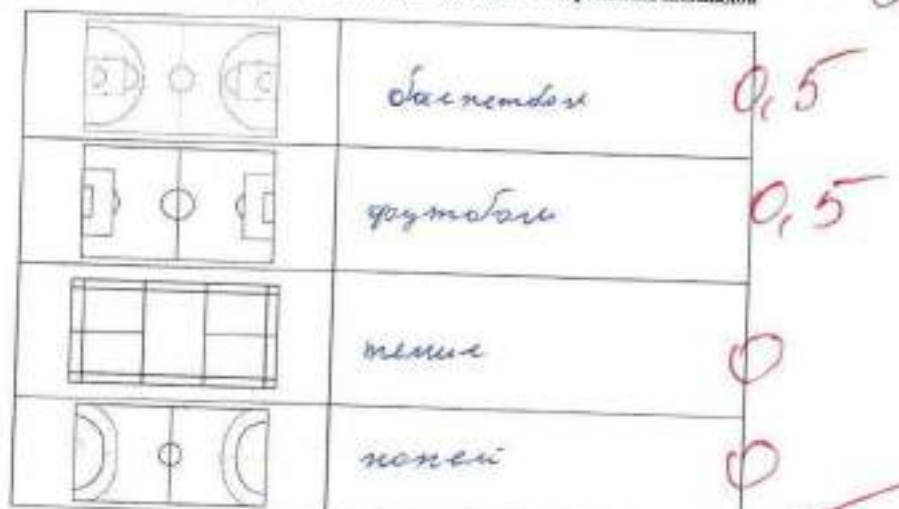 баскетбол 0,5
футбол 0,5
теннис 0
хоккей 0